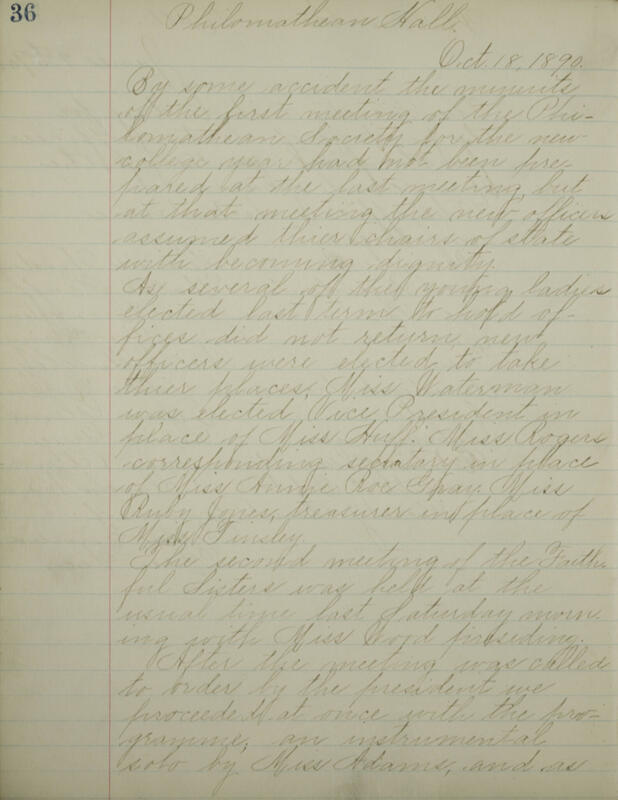 36
Philomathean Hall.
Oct. 18, 1890.
By some accident the minuits
of the first meeting of the Phi-
lomathean Society for the new
college year had not been pre
pared at the last meeting, but
at that meeting the new officers
assumed thier chairs of state
with becoming dignity.
As several of the young ladies
elected last term to hold of-
fices did not return, new
officers were elected to take
thier places. Miss Waterman
was elected Vice President in
place of Miss Huff. Miss Rogers
corresponding secratary in place
of Miss Annie Roe Gray. Miss
Ruby Jones, treasurer in place of
Miss Tinsley.
The second meeting of the Faith
ful Sisters was held at the
usual time last Saturday morn
ing with Miss presiding.
After the meeting was called
to order by the president we
proceeded at once with the pro-
gramme, an instrumental
solo by Miss Adams, and as